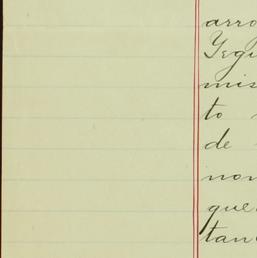 arro
Yegu
mis
to
de
non
que
tan